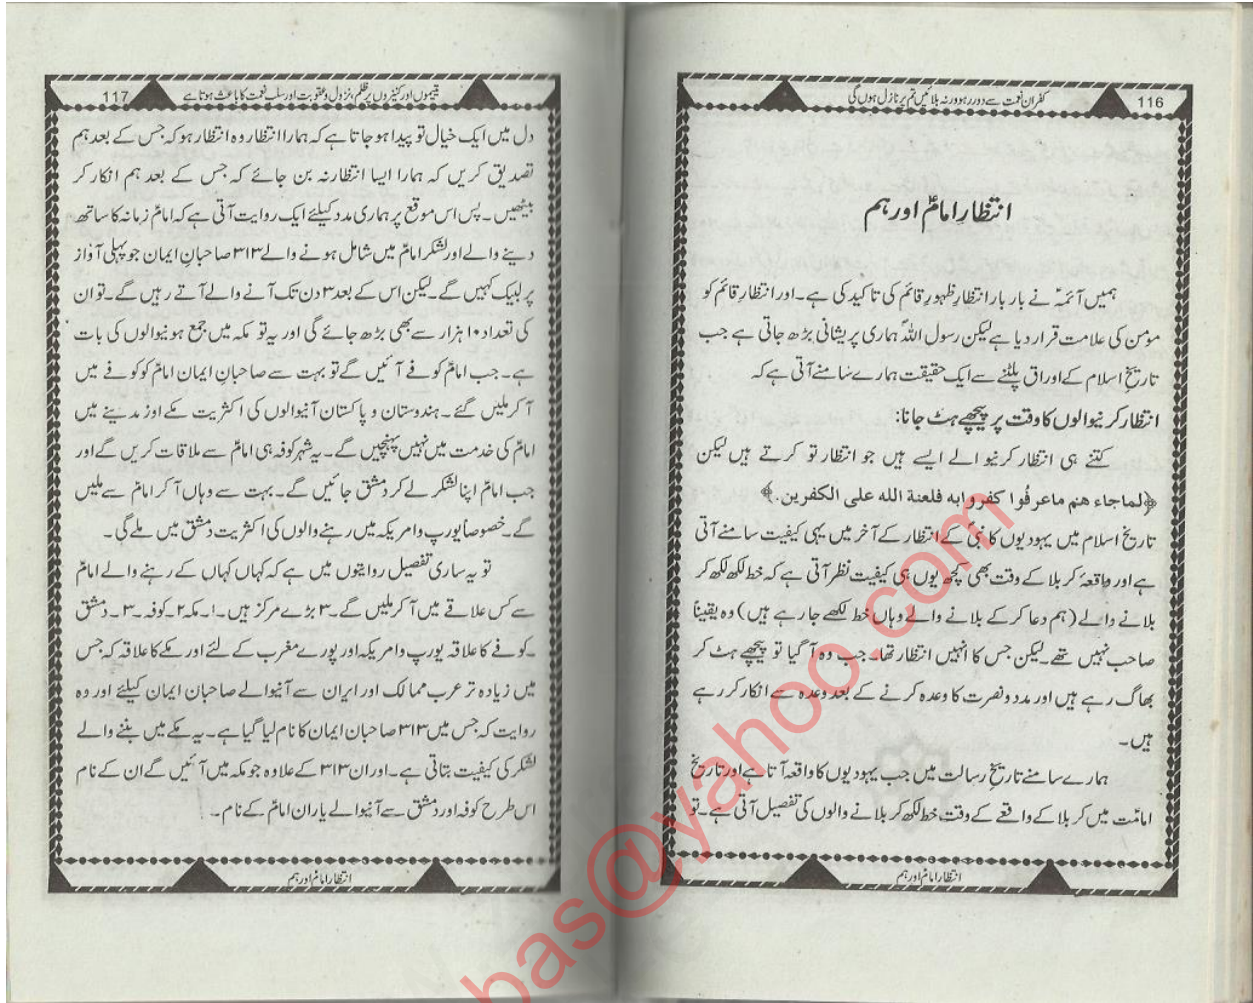 116
کفران نعمت سے دور رہو ورنہ بلائیں تم پر نازل ہوں گی
انتظارِ امامؑ اور ہم
ہمیں آئمہؑ نے بار بار انتظارِ ظہورِ قائم کی تاکید کی ہے۔ اور انتظارِ قائم کو
مؤمن کی علامت قرار دیا ہے لیکن رسول اللہؐ ہماری پریشانی بڑھ جاتی ہے جب
تاریخِ اسلام کے اوراق پلٹنے سے ایک حقیقت ہمارے سامنے آتی ہے کہ
انتظار کرنیوالوں کا وقت پر پیچھے ہٹ جانا:
کتنے ہی انتظار کرنیوالے ایسے ہیں جو انتظار تو کرتے ہیں لیکن
﴿لما جاء هم ماعرفُوا كفروا به فلعنة الله على الكفرين.﴾
تاریخ اسلام میں یہودیوں کا نبیؐ کے انتظار کے آخر میں یہی کیفیت سامنے آتی
ہے اور واقعۂ کربلا کے وقت بھی کچھ یوں ہی کیفیت نظر آتی ہے کہ خط لکھ لکھ کر
بلانے والے (ہم دعا کر کے بلانے والے وہاں خط لکھے جا رہے ہیں) وہ یقیناً
صاحب نہیں تھے۔ لیکن جس کا انہیں انتظار تھا۔ جب وہ آ گیا تو پیچھے ہٹ کر
بھاگ رہے ہیں اور مدد و نصرت کا وعدہ کرنے کے بعد وعدہ سے انکار کر رہے
ہیں۔
ہمارے سامنے تاریخِ رسالت میں جب یہودیوں کا واقعہ آتا ہے اور تاریخ
امامت میں کربلا کے واقعے کے وقت خط لکھ کر بلانے والوں کی تفصیل آتی ہے۔ تو
انتظار امامؑ اور ہم
117
یتیموں اور کنیزوں پر ظلم، نزول و عقوبت اور سلب نعمت کا باعث ہوتا ہے
دل میں ایک خیال تو پیدا ہو جاتا ہے کہ ہمارا انتظار وہ انتظار ہو کہ جس کے بعد ہم
تصدیق کریں کہ ہمارا ایسا انتظار نہ بن جائے کہ جس کے بعد ہم انکار کر
بیٹھیں۔ پس اس موقع پر ہماری مدد کیلئے ایک روایت آتی ہے کہ امامؑ زمانہ کا ساتھ
دینے والے اور لشکر امامؑ میں شامل ہونے والے ۳۱۳ صاحبانِ ایمان جو پہلی آواز
پر لبیک کہیں گے۔ لیکن اس کے بعد ۳ دن تک آنے والے آتے رہیں گے۔ تو ان
کی تعداد ۱۰ ہزار سے بھی بڑھ جائے گی اور یہ تو مکہ میں جمع ہونیوالوں کی بات
ہے۔ جب امامؑ کوفے آئیں گے تو بہت سے صاحبانِ ایمان امامؑ کو کوفے میں
آ کر ملیں گئے۔ ہندوستان و پاکستان آنیوالوں کی اکثریت مکے اور مدینے میں
امامؑ کی خدمت میں نہیں پہنچیں گے۔ یہ شہر کوفہ ہی امامؑ سے ملاقات کریں گے اور
جب امامؑ اپنا لشکر لے کر دمشق جائیں گے۔ بہت سے وہاں آ کر امامؑ سے ملیں
گے۔ خصوصاً یورپ و امریکہ میں رہنے والوں کی اکثریت دمشق میں ملے گی۔
تو یہ ساری تفصیل روایتوں میں ہے کہ کہاں کہاں کے رہنے والے امامؑ
سے کس علاقے میں آ کر ملیں گے۔ ۳ بڑے مرکز ہیں۔ ۱۔ مکہ ۲۔ کوفہ۔ ۳۔ دمشق
۔ کوفے کا علاقہ یورپ و امریکہ اور پورے مغرب کے لئے اور مکے کا علاقہ کہ جس
میں زیادہ تر عرب ممالک اور ایران سے آنیوالے صاحبان ایمان کیلئے اور وہ
روایت کہ جس میں ۳۱۳ صاحبان ایمان کا نام لیا گیا ہے۔ یہ مکے میں بننے والے
لشکر کی کیفیت بتاتی ہے۔ اور ان ۳۱۳ کے علاوہ جو مکہ میں آئیں گے ان کے نام
اس طرح کوفہ اور دمشق سے آنیوالے یاران امامؑ کے نام۔
انتظار امامؑ اور ہم
bas@yahoo.com